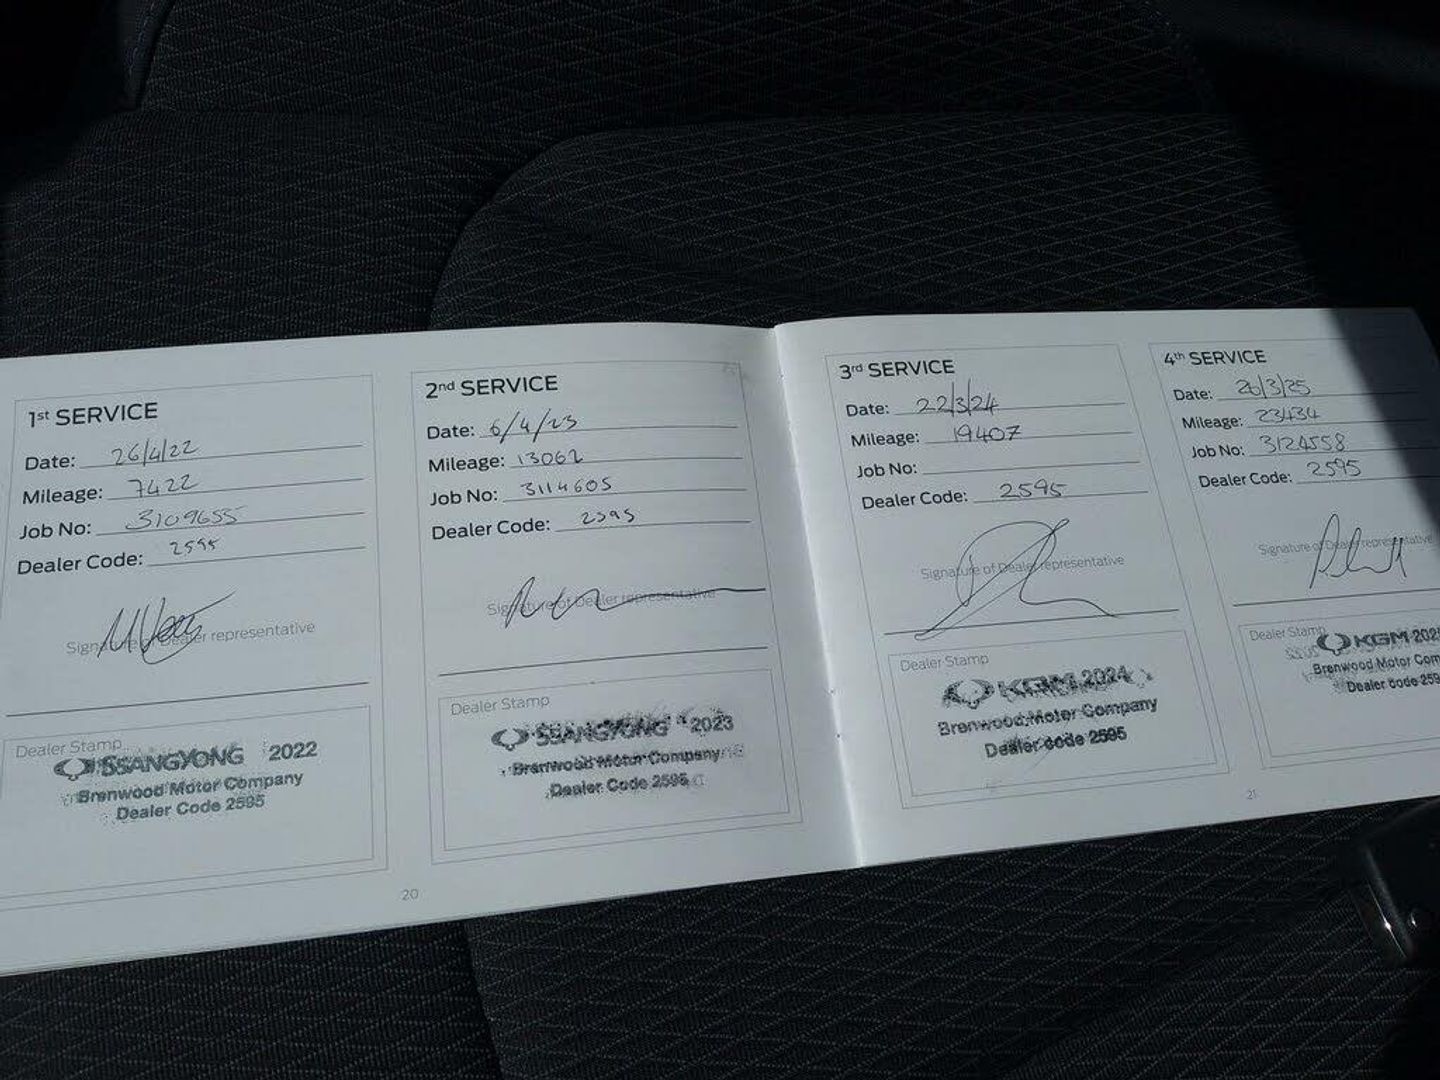 1st SERVICE
Date: 26/4/22
Mileage: 7422
Job No: 3109655
Dealer Code: 2595
Signature of Dealer representative
Dealer Stamp
SSANGYONG 2022
Brenwood Motor Company
Dealer Code 2595
20
2nd SERVICE
Date: 6/4/23
Mileage: 13062
Job No: 3114605
Dealer Code: 2595
Signature of Dealer representative
Dealer Stamp
SSANGYONG 2023
Brenwood Motor Company
Dealer Code 2595
3rd SERVICE
Date: 22/3/24
Mileage: 19407
Job No:
Dealer Code: 2595
Signature of Dealer representative
Dealer Stamp
KGM 2024
Brenwood Motor Company
Dealer code 2595
4th SERVICE
Date: 26/3/25
Mileage: 23434
Job No: 3124558
Dealer Code: 2595
Signature of Dealer representative
Dealer Stamp
KGM 202
Brenwood Motor Com
Dealer code 259
21